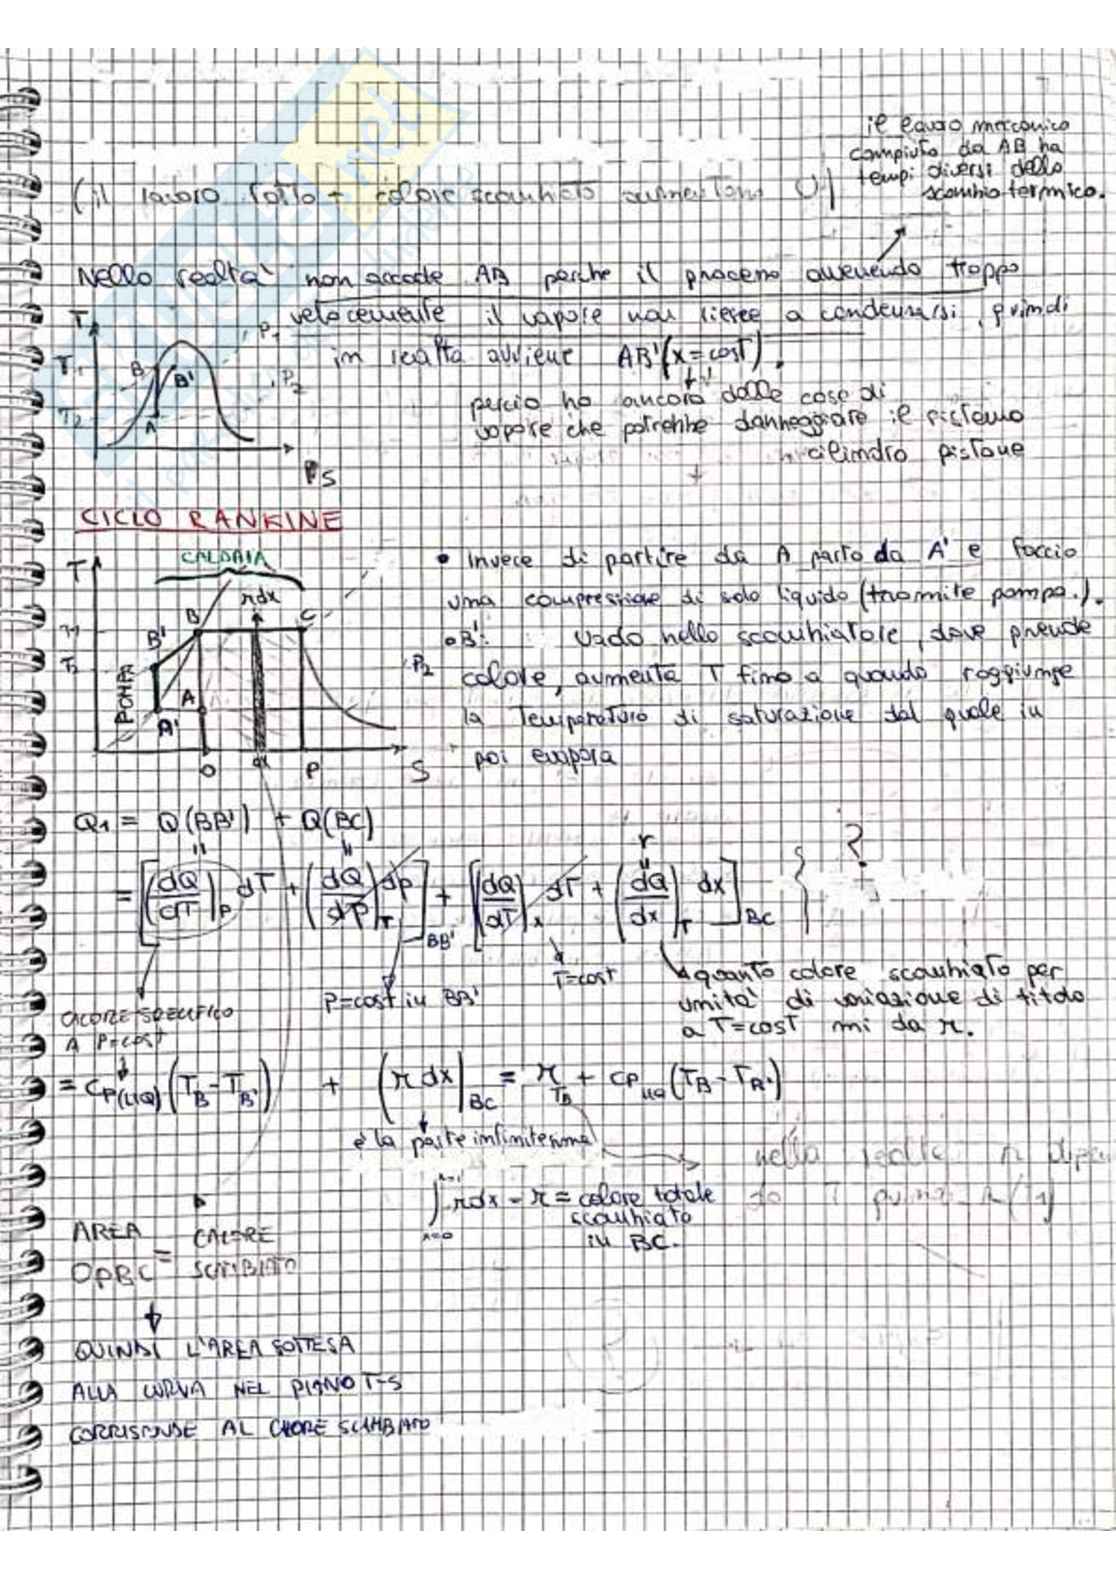 il lavoro meccanico
compiuto da AB ha
tempi diversi dello
scambio termico.
(il lavoro fatto + calore scambiato aumentano U)
Nella realtà non accade AB perché il processo avvenendo troppo
velocemente il vapore non riesce a condensarsi, quindi
in realtà avviene AB'(x=cost).
perciò ho ancora delle cose di
vapore che potrebbe danneggiare il sistema
cilindro pistone
T
T1
T2
B
B'
A
P1
P2
S
CICLO RANKINE
CALDAIA
T
rdx
B
C
B'
T1
T2
P2
POMPA
A
A'
O
dx
P
S
• Invece di partire da A parto da A' e faccio
una compressione di solo liquido (tramite pompa.).
• B': vado nello scambiatore, dove prende
calore, aumenta T fino a quando raggiunge
la Temperatura di saturazione dal quale in
poi evapora
Q1 = Q(BB') + Q(BC)
= [(dQ/dT)P dT + (dQ/dP)T dp]BB' + [(dQ/dT)x dT + (dQ/dx)T dx]BC
r
?
CALORE SPECIFICO
A P=cost
P=cost in BB'
T=cost
quanto calore scambiato per
unità di variazione di titolo
a T=cosT mi da r.
= CP(LIQ) (TB-TB') + (r dx)BC = r TB + CP LIQ (TB-TB')
è la parte infinitesima
∫ x=0 x=1 rdx = r = calore totale
scambiato
in BC.
nella realtà r dipen
da T quindi r(T)
AREA
OPBC = CALORE
SCAMBIATO
QUINDI L'AREA SOTTESA
ALLA CURVA NEL PIANO T-S
CORRISPONDE AL CALORE SCAMBIATO